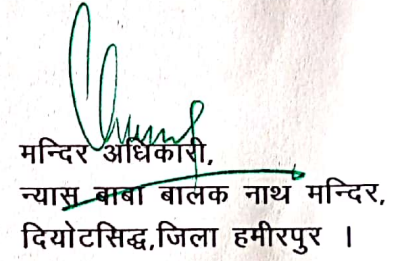 मन्दिर अधिकारी,
न्यास बाबा बालक नाथ मन्दिर,
दियोटसिद्ध,जिला हमीरपुर ।